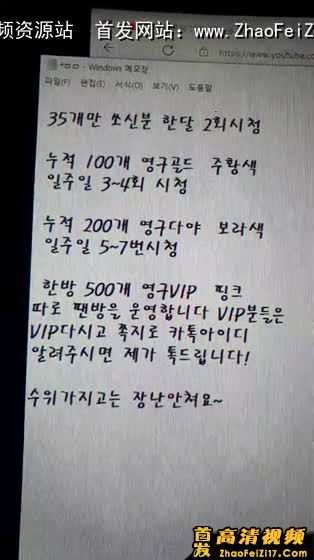 频资源站 首发网站：www.ZhaoFeiZ
https://www.youtube.co
*ㅁㅁ - Windows 메모장
파일(F) 편집(E) 서식(O) 보기(V) 도움말
35개만 쏘신분 한달 2회시청
누적 100개 영구골드 주황색
일주일 3~4회 시청
누적 200개 영구다야 보라색
일주일 5~7번시청
한방 500개 영구VIP 핑크
따로 팬방을 운영합니다 VIP분들은
VIP다시고 쪽지로 카톡아이디
알려주시면 제가 톡드립니다!
수위가지고는 장난안쳐요~
首发 高清视频
ZhaoFeiZi17.Com